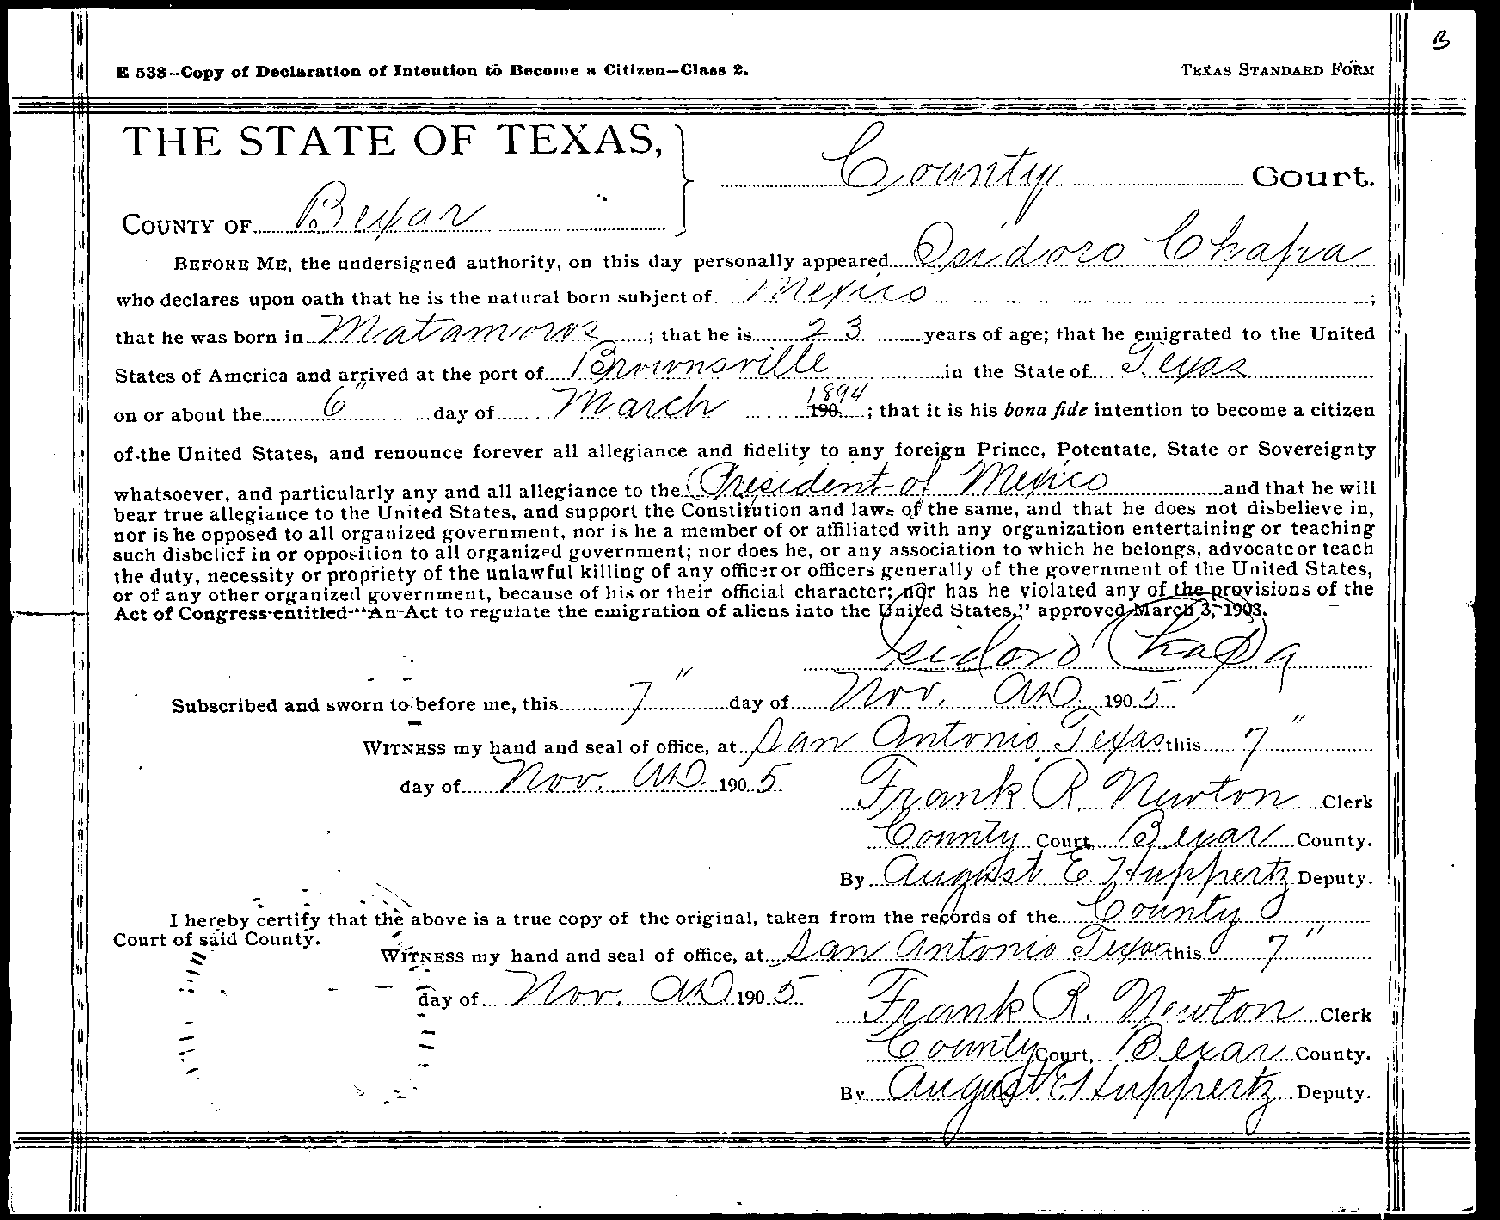 B
E 538--Copy of Declaration of Intention to Become a Citizen--Class 2. TEXAS STANDARD FORM
THE STATE OF TEXAS,
County Court.
COUNTY OF Bexar
BEFORE ME, the undersigned authority, on this day personally appeared Isidoro Chapa
who declares upon oath that he is the natural born subject of Mexico ;
that he was born in Matamoros ; that he is 23 years of age; that he emigrated to the United
States of America and arrived at the port of Brownsville in the State of Texas
on or about the 6" day of March 190 1894 ; that it is his bona fide intention to become a citizen
of the United States, and renounce forever all allegiance and fidelity to any foreign Prince, Potentate, State or Sovereignty
whatsoever, and particularly any and all allegiance to the President of Mexico and that he will
bear true allegiance to the United States, and support the Constitution and laws of the same, and that he does not disbelieve in,
nor is he opposed to all organized government, nor is he a member of or affiliated with any organization entertaining or teaching
such disbelief in or opposition to all organized government; nor does he, or any association to which he belongs, advocate or teach
the duty, necessity or propriety of the unlawful killing of any officer or officers generally of the government of the United States,
or of any other organized government, because of his or their official character; nor has he violated any of the provisions of the
Act of Congress entitled "An Act to regulate the emigration of aliens into the United States," approved March 3, 1903.
Isidoro Chapa
Subscribed and sworn to before me, this 7" day of Nov. AD. 1905
WITNESS my hand and seal of office, at San Antonio, Texas this 7"
day of Nov. AD 1905
Frank R. Newton Clerk
County Court, Bexar County.
By August E Huppertz Deputy.
I hereby certify that the above is a true copy of the original, taken from the records of the County
Court of said County.
WITNESS my hand and seal of office, at San Antonio Texas this 7"
day of Nov. AD 1905
Frank R. Newton Clerk
County Court, Bexar County.
By August E Huppertz Deputy.